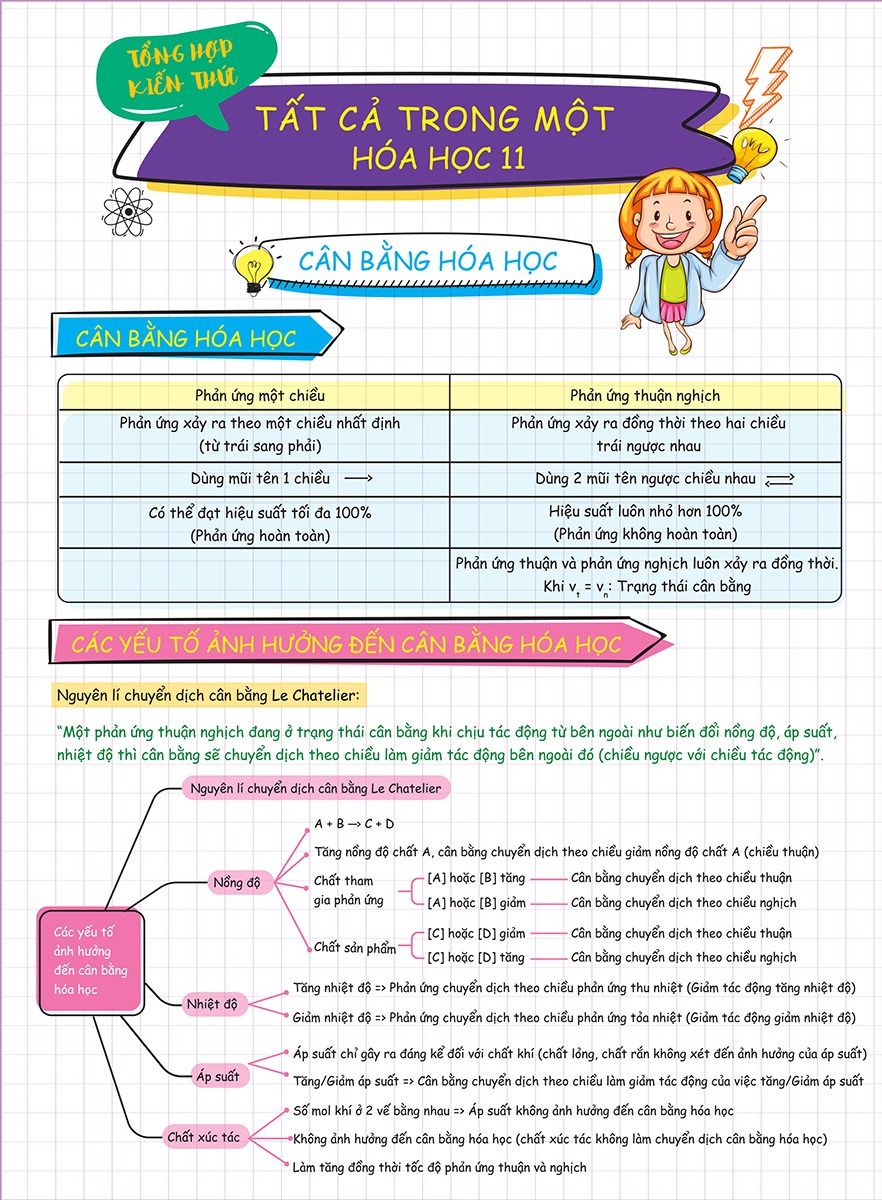 TỔNG HỢP
KIẾN THỨC
TẤT CẢ TRONG MỘT
HÓA HỌC 11
CÂN BẰNG HÓA HỌC
CÂN BẰNG HÓA HỌC
Phản ứng một chiều
Phản ứng thuận nghịch
Phản ứng xảy ra theo một chiều nhất định
(từ trái sang phải)
Phản ứng xảy ra đồng thời theo hai chiều
trái ngược nhau
Dùng mũi tên 1 chiều ⟶
Dùng 2 mũi tên ngược chiều nhau ⇌
Có thể đạt hiệu suất tối đa 100%
(Phản ứng hoàn toàn)
Hiệu suất luôn nhỏ hơn 100%
(Phản ứng không hoàn toàn)
Phản ứng thuận và phản ứng nghịch luôn xảy ra đồng thời.
Khi vt = vn: Trạng thái cân bằng
CÁC YẾU TỐ ẢNH HƯỞNG ĐẾN CÂN BẰNG HÓA HỌC
Nguyên lí chuyển dịch cân bằng Le Chatelier:
“Một phản ứng thuận nghịch đang ở trạng thái cân bằng khi chịu tác động từ bên ngoài như biến đổi nồng độ, áp suất,
nhiệt độ thì cân bằng sẽ chuyển dịch theo chiều làm giảm tác động bên ngoài đó (chiều ngược với chiều tác động)”.
Các yếu tố
ảnh hưởng
đến cân bằng
hóa học
Nguyên lí chuyển dịch cân bằng Le Chatelier
Nồng độ
A + B ⟶ C + D
Tăng nồng độ chất A, cân bằng chuyển dịch theo chiều giảm nồng độ chất A (chiều thuận)
Chất tham
gia phản ứng
[A] hoặc [B] tăng
Cân bằng chuyển dịch theo chiều thuận
[A] hoặc [B] giảm
Cân bằng chuyển dịch theo chiều nghịch
Chất sản phẩm
[C] hoặc [D] giảm
Cân bằng chuyển dịch theo chiều thuận
[C] hoặc [D] tăng
Cân bằng chuyển dịch theo chiều nghịch
Nhiệt độ
Tăng nhiệt độ => Phản ứng chuyển dịch theo chiều phản ứng thu nhiệt (Giảm tác động tăng nhiệt độ)
Giảm nhiệt độ => Phản ứng chuyển dịch theo chiều phản ứng tỏa nhiệt (Giảm tác động giảm nhiệt độ)
Áp suất
Áp suất chỉ gây ra đáng kể đối với chất khí (chất lỏng, chất rắn không xét đến ảnh hưởng của áp suất)
Tăng/Giảm áp suất => Cân bằng chuyển dịch theo chiều làm giảm tác động của việc tăng/Giảm áp suất
Chất xúc tác
Số mol khí ở 2 vế bằng nhau => Áp suất không ảnh hưởng đến cân bằng hóa học
Không ảnh hưởng đến cân bằng hóa học (chất xúc tác không làm chuyển dịch cân bằng hóa học)
Làm tăng đồng thời tốc độ phản ứng thuận và nghịch